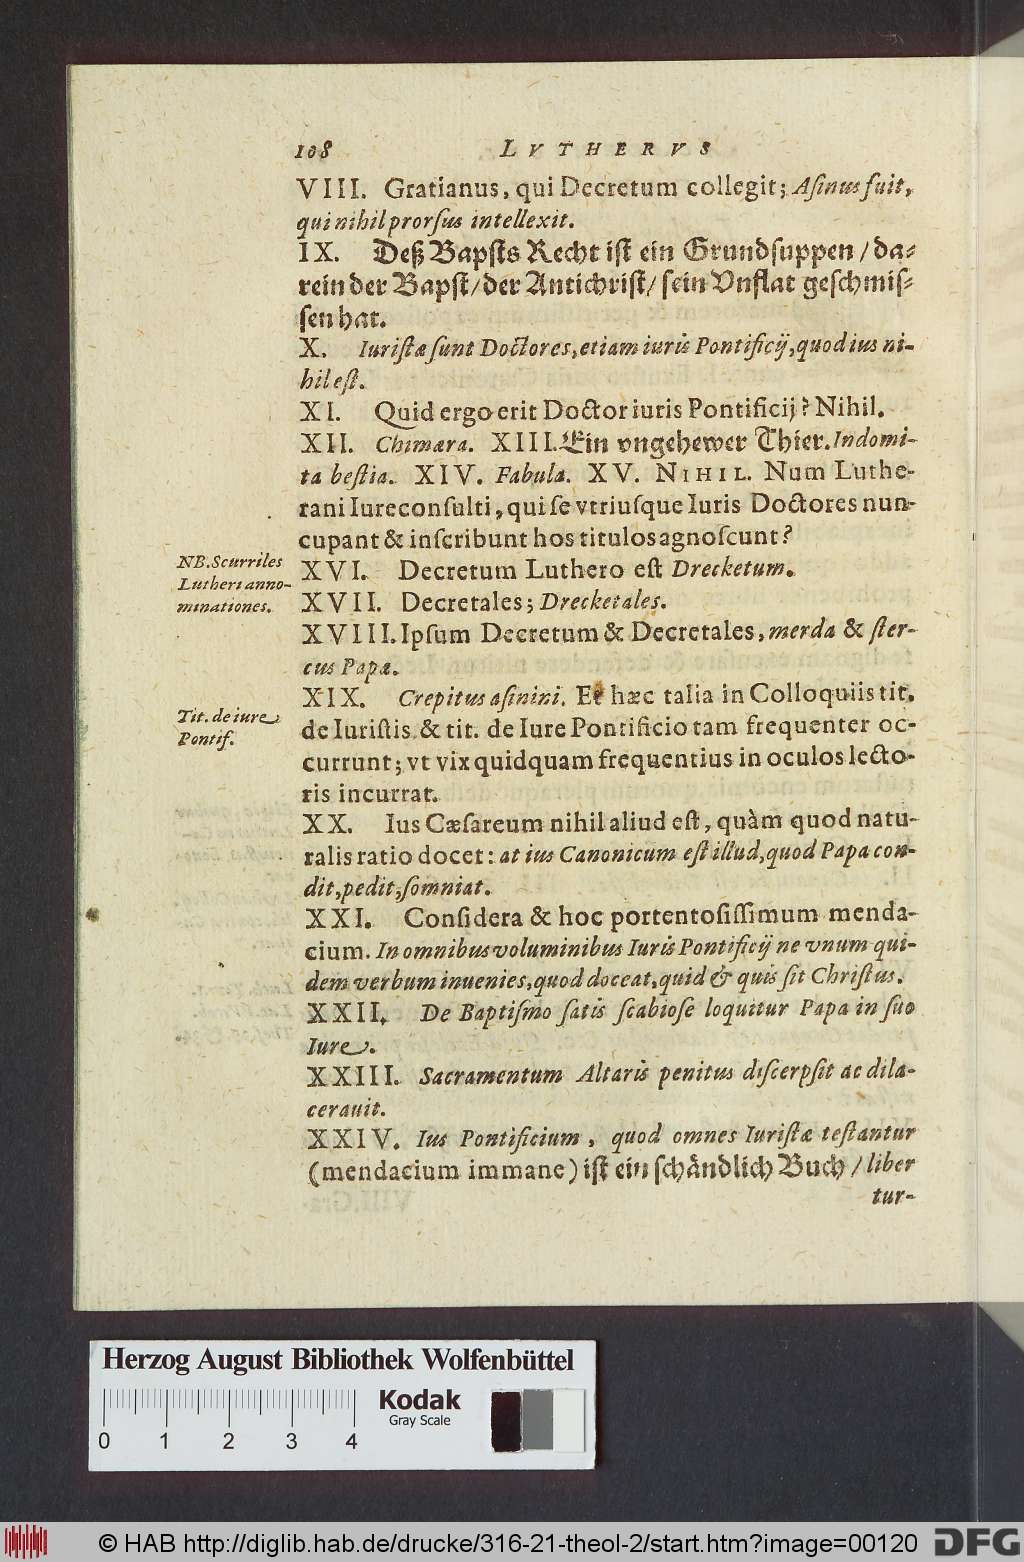 108 LVTHERVS
VIII. Gratianus, qui Decretum collegit; Asinus fuit,
qui nihil prorſus intellexit.
IX. Deß Bapſts Recht iſt ein Grundſuppen / da⸗
rein der Bapſt / der Antichriſt / ſein Vnflat geſchmiſ⸗
ſen hat.
X. Iuriſtæ ſunt Doctores, etiam iuris Pontificij, quod ius ni-
hil eſt.
XI. Quid ergo erit Doctor iuris Pontificij? Nihil.
XII. Chimæra. XIII. Ein vngehewer Thier. Indomi-
ta beſtia. XIV. Fabula. XV. NIHIL. Num Luthe-
rani Iureconſulti, qui ſe vtriuſque Iuris Doctores nun-
cupant & inſcribunt hos titulos agnoſcunt?
NB. Scurriles
Lutheri anno-
minationes.
XVI. Decretum Luthero eſt Drecketum.
XVII. Decretales; Drecketales.
XVIII. Ipſum Decretum & Decretales, merda & ſter-
cus Papæ.
XIX. Crepitus aſinini. Et hæc talia in Colloquiis tit.
Tit. de iure
Pontif.
de Iuriſtis & tit. de Iure Pontificio tam frequenter oc-
currunt; vt vix quidquam frequentius in oculos lecto-
ris incurrat.
XX. Ius Cæſareum nihil aliud eſt, quàm quod natu-
ralis ratio docet: at ius Canonicum eſt illud, quod Papa con-
dit, pedit, ſomniat.
XXI. Conſidera & hoc portentoſiſſimum menda-
cium. In omnibus voluminibus Iuris Pontificij ne vnum qui-
dem verbum inuenies, quod doceat, quid & quis ſit Chriſtus.
XXII. De Baptiſmo ſatis ſcabioſe loquitur Papa in ſuo
Iure.
XXIII. Sacramentum Altaris penitus diſcerpſit ac dila-
cerauit.
XXIV. Ius Pontificium, quod omnes Iuriſtæ teſtantur
(mendacium immane) iſt ein ſchändlich Buch / liber
tur-
Herzog August Bibliothek Wolfenbüttel
Kodak
Gray Scale
0 1 2 3 4
© HAB http://diglib.hab.de/drucke/316-21-theol-2/start.htm?image=00120
DFG